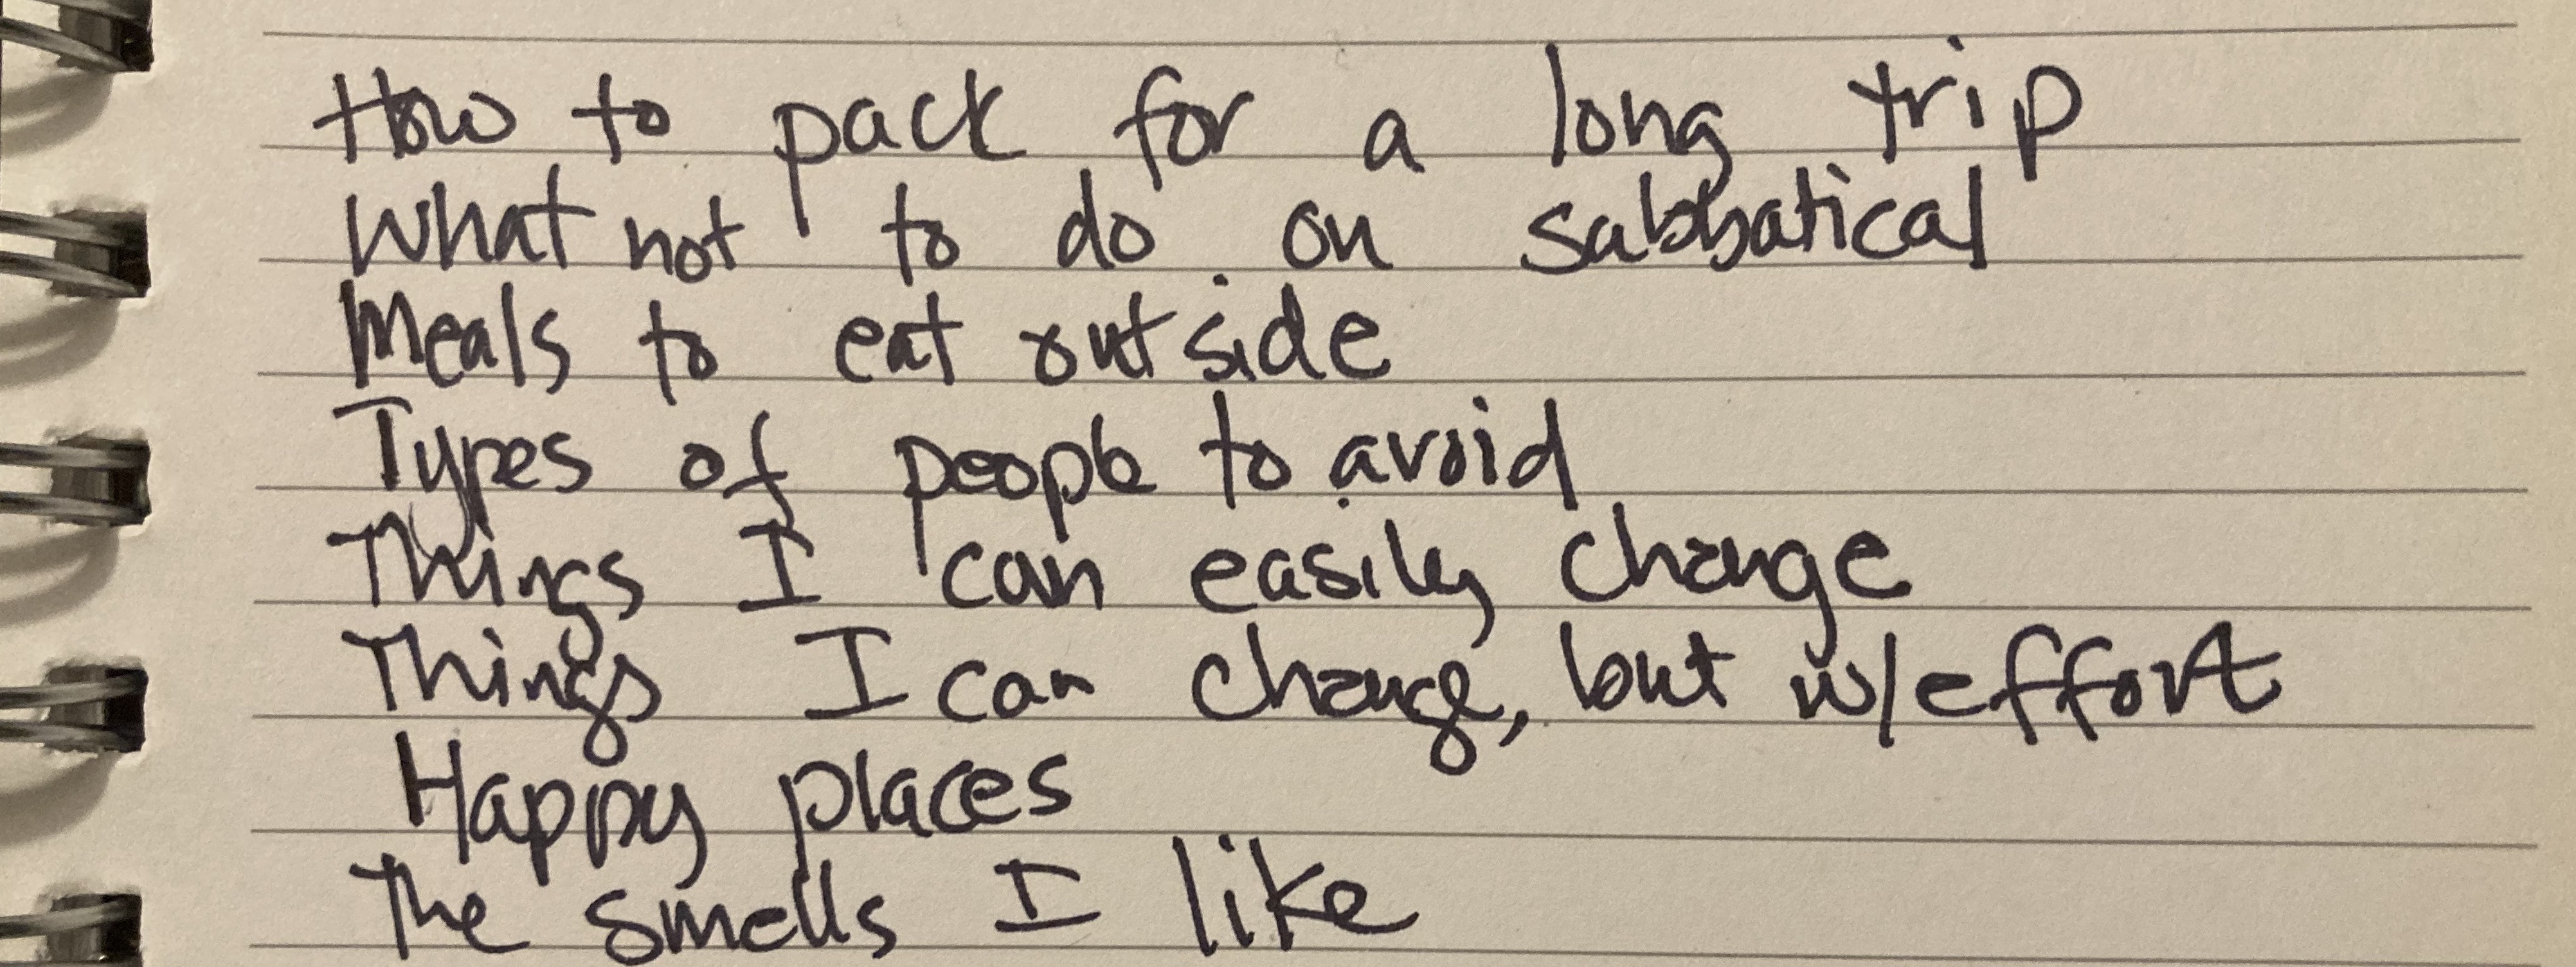 How to pack for a long trip
What not to do on sabbatical
Meals to eat outside
Types of people to avoid
Things I can easily change
Things I can change, but w/effort
Happy places
The smells I like